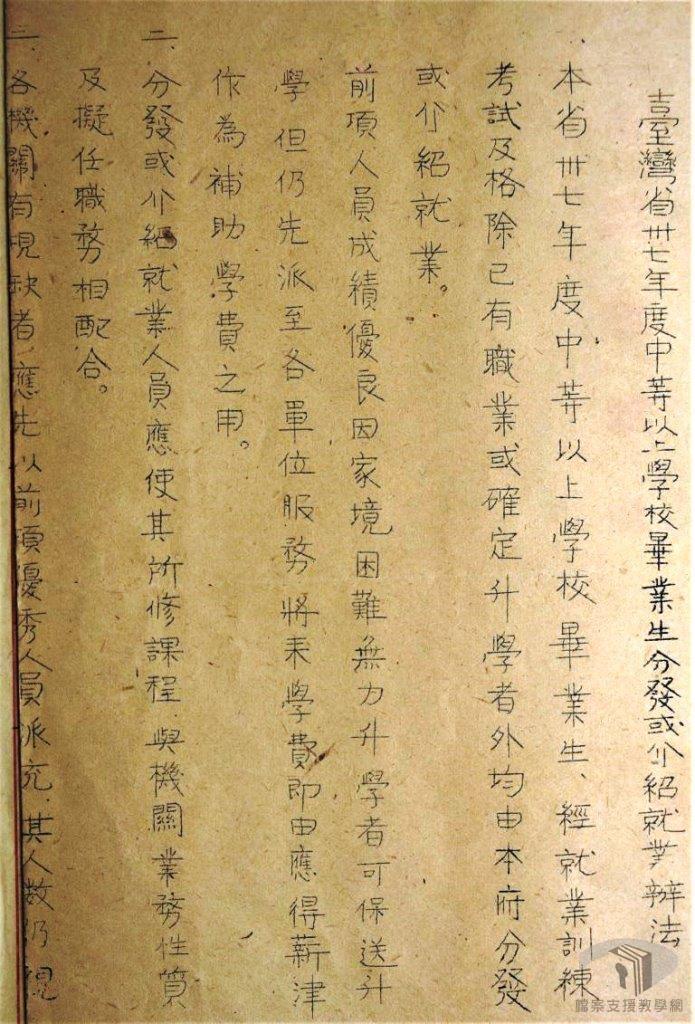 臺灣省卅七年度中等以上學校畢業生分發或介紹就業辦法
一、本省卅七年度中等以上學校畢業生、經就業訓練
考試及格除已有職業或確定升學者外均由本府分發
或介紹就業。
前項人員成績優良因家境困難無力升學者可保送升
學但仍先派至各單位服務將來學費即由應得薪津
作為補助學費之用。
二、分發或介紹就業人員應使其所修課程與機關業務性質
及擬任職務相配合。
三、各機關有現缺者應先以前項優秀人員派充、其人數仍視
檔案支援教學網